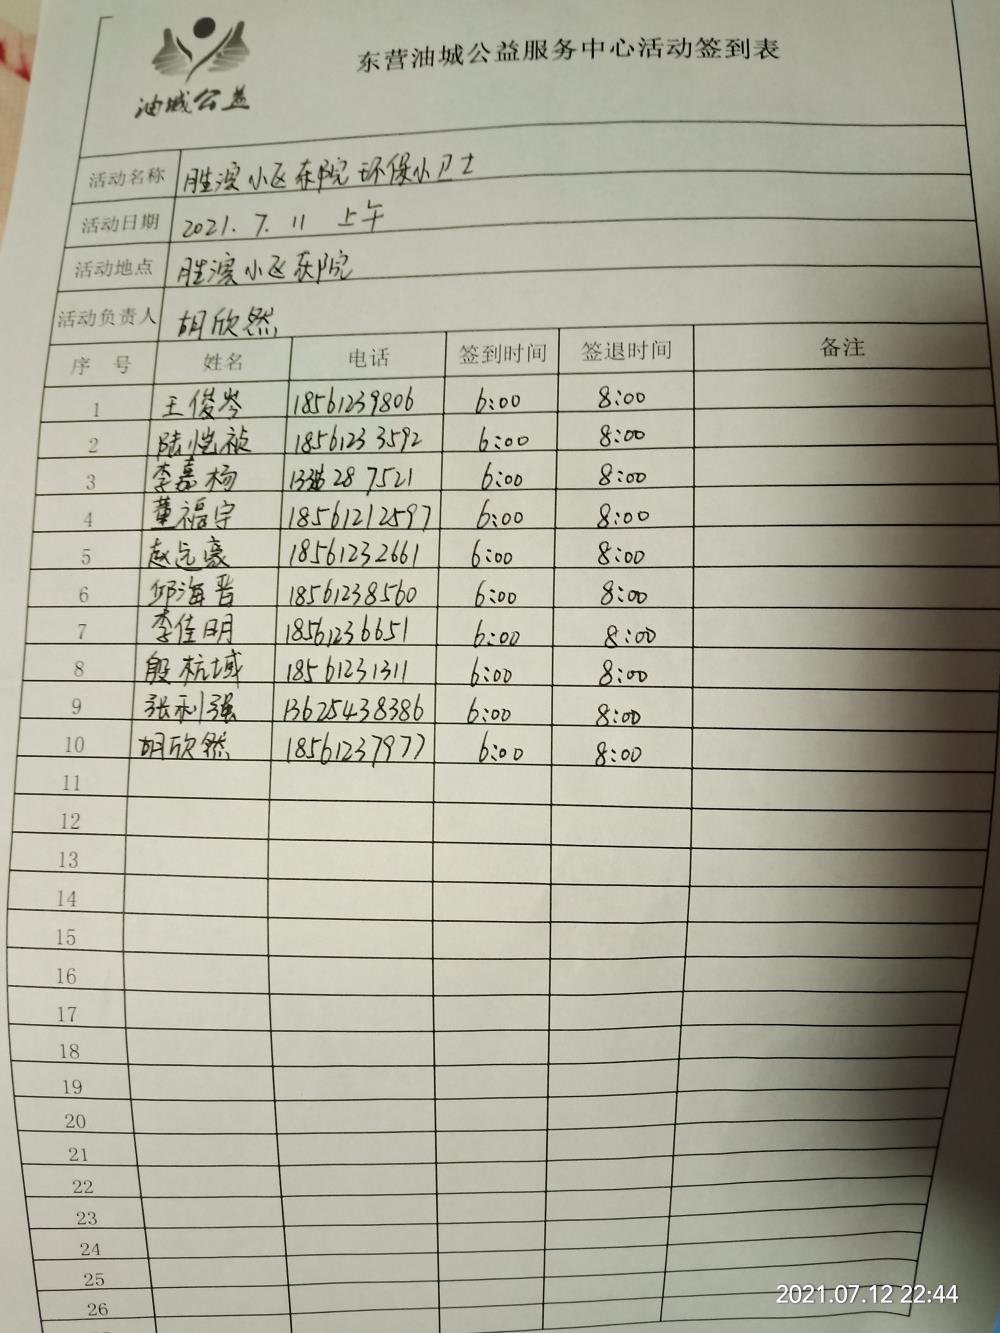 油城公益
东营油城公益服务中心活动签到表
活动名称 胜滨小区东院环保小卫士
活动日期 2021.7.11 上午
活动地点 胜滨小区东院
活动负责人 胡欣然
序号 姓名 电话 签到时间 签退时间 备注
1 王俊岑 18561239806 6:00 8:00
2 陆恺祯 18561233592 6:00 8:00
3 李嘉杨 287521 6:00 8:00
4 董福宇 18561212597 6:00 8:00
5 赵远豪 18561232661 6:00 8:00
6 邱海晋 18561238560 6:00 8:00
7 李佳明 18561236651 6:00 8:00
8 殷杭域 18561231311 6:00 8:00
9 张利强 13625438386 6:00 8:00
10 胡欣然 18561237977 6:00 8:00
11
12
13
14
15
16
17
18
19
20
21
22
23
24
25
26
2021.07.12 22:44